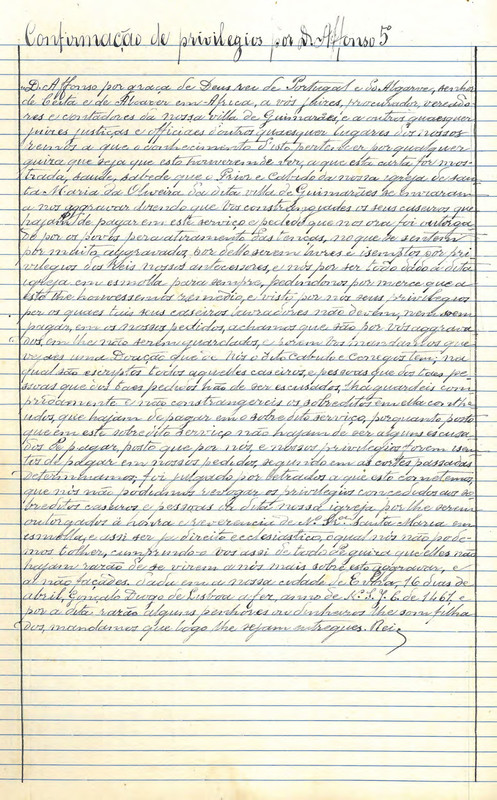 Confirmação de privilegios por D. Affonso 5º
D. Affonso por graça de Deus rei de Portugal e do Algarve, senhor
de Ceita e de Alcacer em Africa, a vós juizes, procurador, vereado-
res e contadores da nossa villa de Guimarães, e a outros quaesquer
juizes justiças e officiaes d'outros quaesquer lugares dos nossos
reinos a que o conhecimento d'isto pertencer por qualquer
guiza que seja que esta houverem de ver, a que esta carta for mos-
trada, saude, sabede que o Prior e Cabido da nossa igreja de San-
ta Maria da Oliveira da dita villa de Guimarães se enviaram
a nós aggravar dizendo que vós constrangedes os seus caseiros que
hajam de pagar em este serviço e pedido que nos ora foi outorga-
do por os povos para tiramento das tenças, no que se sentem
por muito aggravados, por dello serem livres e isemptos por pri-
vilegios dos reis nossos antecessores, e nós por ser dado á dita
igreja em esmolla para sempre, pedindo nos por merce que a
esto lhe houvessemos remedio, e visto por nós seus privilegios
per os quaes taes seus caseiros lavradores não devem, nem hão em
pagar, em os nossos pedidos, achamos que são por vós aggrava-
dos, em lhe não serem guardados, e porem vos mandamos que
vejaes uma Doação que de Nós o dito Cabido e Conegos tem, na
qual são escriptos todos aquelles caseiros, e pessoas que dos taes pe-
ssoas que dos taes pedidos hão de ser escusados, lha guardeis com-
pridamente e não constrangereis os sobreditos em ella conthe-
udos, que hajam de pagar em o sobredito serviço, porquanto, posto
que em este sobredito serviço não hajam de ser alguns escusa-
dos de pagar, posto que por nós, e nossos privilegios forem isem-
tos de pagar em nossos pedidos, segundo em as cortes passadas
determinamos, foi julgado por letrados a que esto comettemos,
que nós não podiamos revogar os privilegios concedidos aos so-
breditos caseiros e pessoas da dita nossa igreja, por lhe serem
outorgados á honra e reverencia de N. Snrª Santa Maria em
esmolla, e assi ser já direito ecclesiastico, o qual nós não pode-
mos tolher, cumprindo-o vos assi de todo de guiza que elles não
hajam razão de se virem a nós mais sobre esto aggravar, e
al não façades. Dada em a nossa cidade de Evora, 16 dias de
abril, Gonçalo Diogo de Lisboa a fez, anno de N. S. J. C. de 1461 e
por a dita razão alguns penhores ou dinheiros lhe som filha-
dos, mandamos que logo lhe sejam entregues. Rei